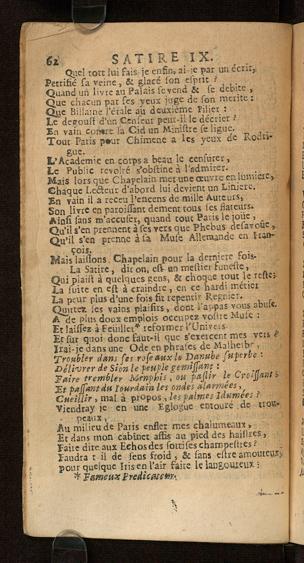 62 SATIRE IX.
Quel tort lui fais-je enfin, ai-je par un écrit,
Petrifié sa veine, & glacé son esprit ?
Quand un livre au Palais se vend & se debite,
Que chacun par ses yeux juge de son merite :
Que Billaine l'étale au deuxiéme Pilier :
Le degoust d'un Censeur peut-il le décrier ?
En vain contre la Cid un Ministre se ligue.
Tout Paris pour Chimene a les yeux de Rodri-
gue.
L'Academie en corps a beau le censurer,
Le Public revolté s'obstine à l'admirer.
Mais lors que Chapelain met une œuvre en lumiére,
Chaque Lecteur d'abord lui devient un Liniere,
En vain il a receu l'encens de mille Auteurs,
Son livre en paroissant dement tous ses flateurs.
Ainsi sans m'accuser, quand tout Paris le joüe,
Qu'il s'en prenne à ses vers que Phebus desavoüe,
Qu'il s'en prenne à sa Muse Allemande en Fran-
çois.
Mais laissons Chapelain pour la derniere fois.
La Satire, dit on, est un mestier funeste,
Qui plaist à quelques gens, & choque tout le reste:
La suite en est à craindre, en ce hardi métier
La peur plus d'une fois fit repentir Regnier.
Quittez les vains plaisirs, dont l'appas vous abuse.
A de plus doux emplois occupez vostre Muse :
Et laissez à Feüillet * reformer l'Univers.
Et sur quoi donc faut-il que s'exercent mes vers ?
Irai-je dans une Ode en phrases de Malherbe,
Troubler dans ses roseaux le Danube superbe :
Délivrer de Sion le peuple gemissant :
Faire trembler Memphis, ou paslir le Croissant :
Et passant du Jourdain les ondes alarmées,
Cueillir, mal à propos, les palmes Idumées ?
Viendray je en une Eglogue entouré de trou-
peaux,
Au milieu de Paris enfler mes chalumeaux,
Et dans mon cabinet assis au pied des haistres,
Faire dire aux Echos des sottises champestres ?
Faudra t-il de sens froid, & sans estre amoureux,
pour quelque Iris en l'air faire le langoureux :
* Fameux Predicateur.